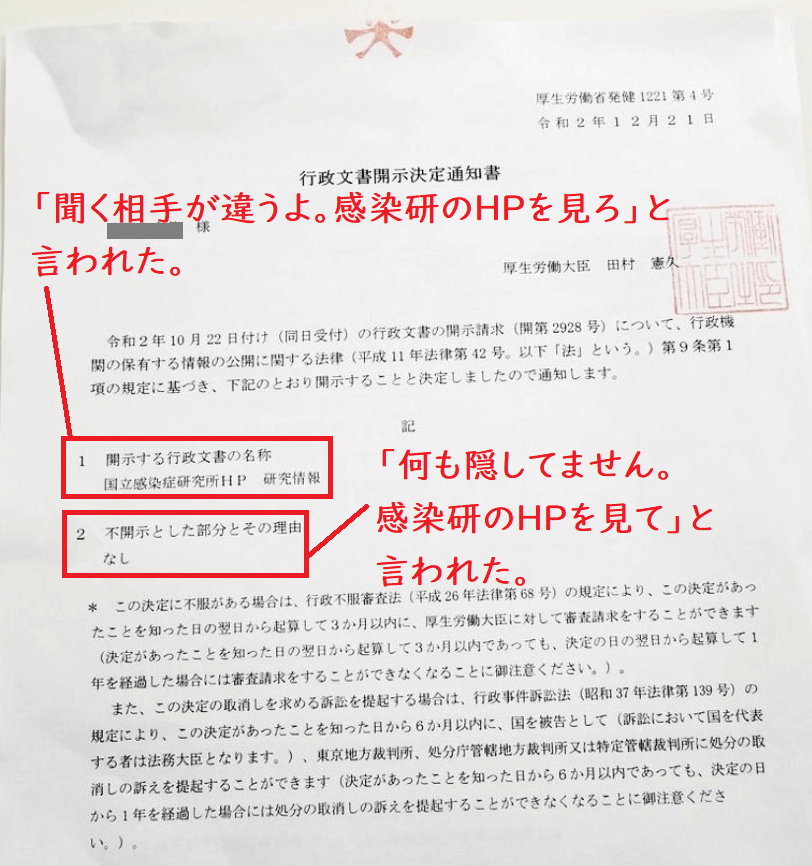 厚生労働省発健1221第4号
令和2年12月21日
行政文書開示決定通知書
「聞く相手が違うよ。感染研のHPを見ろ」と
言われた。
様
厚生労働大臣 田村 憲久
厚生労働大臣印
令和2年10月22日付け(同日受付)の行政文書の開示請求(開第2928号)について、行政機
関の保有する情報の公開に関する法律(平成11年法律第42号。以下「法」という。)第9条第1
項の規定に基づき、下記のとおり開示することと決定しましたので通知します。
記
1 開示する行政文書の名称
国立感染症研究所HP 研究情報
「何も隠してません。
感染研のHPを見て」と
言われた。
2 不開示とした部分とその理由
なし
* この決定に不服がある場合は、行政不服審査法(平成26年法律第68号)の規定により、この決定があっ
たことを知った日の翌日から起算して3か月以内に、厚生労働大臣に対して審査請求をすることができます
(決定があったことを知った日の翌日から起算して3か月以内であっても、決定の日の翌日から起算して1
年を経過した場合には審査請求をすることができなくなることに御注意ください。)。
また、この決定の取消しを求める訴訟を提起する場合は、行政事件訴訟法(昭和37年法律第139号)の
規定により、この決定があったことを知った日から6か月以内に、国を被告として(訴訟において国を代表
する者は法務大臣となります。)、東京地方裁判所、処分庁管轄地方裁判所又は特定管轄裁判所に処分の取
消しの訴えを提起することができます(決定があったことを知った日から6か月以内であっても、決定の日
から1年を経過した場合には処分の取消しの訴えを提起することができなくなることに御注意くださ
い。)。